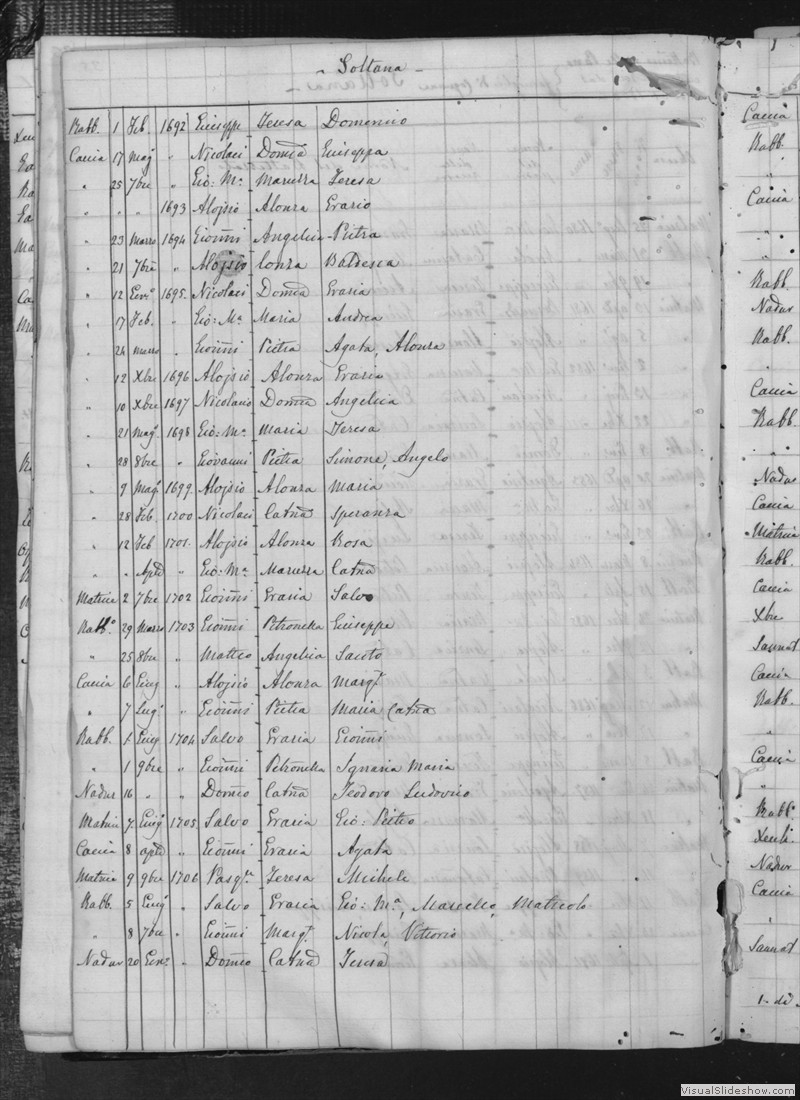 Soltana
Rabb. 1 Feb 1692 Giuseppe Teresa Domenico
Caccia 17 Mag " Nicolaci Domca Giuseppa
" 25 7bre " Gio: Ma Maruzza Teresa
" " " 1693 Alojsio Alonza Grazio
" 23 Marzo 1694 Gioanni Angelica Pietra
" 21 7bre " Alojsio lonza
" 12 Genro 1695. Nicolaci Domca Grazia
" 17 Feb. " Gio: Ma Maria Andrea
" 24 marzo " Gioanni Pietra Agata, Alonza
" 12 Xbre 1696 Alojsio Alonza Grazia
" 10 Xbre 1697 Nicolacio Domca Angelica
" 21 Mag. 1698 Gio: Ma Maria Teresa
" 28 8bre " Giovanni Pietra Simone, Angelo
" 9 Mag 1699. Alojsio Alonza Maria
" 28 Feb. 1700 Nicolaci Catna Speranza
" 12 Feb 1701. Alojsio Alonza Rosa
" " Aple " Gio: Ma Maruzza Catna
Matrice 2 7bre 1702 Gioanni Grazia Salvo
Rabbo 29 Marzo 1703 Gioanni Petronella Giuseppe
" 25 8bre " Matteo Angelica Santo
Caccia 6 Giug " Alojsio Alonza Margta
" 7 Lug. " Gioanni Pietra Maria Catna
Rabb. 1 Giug 1704 Salvo Grazia Gioanni
" 1 9bre " Gioanni Petronella Ignazia Maria
Nadur 16 " " Domco Catna Teodoro Ludovico
Matrice 7. Giug 1705 Salvo Grazia Gio: Pietro
Caccia 8 aple " Gioanni Grazia Agata
Matrice 9 9bre 1706 Pasqle Teresa Michele
Rabb. 5 Giug " Salvo Grazia Gio: Ma, Marcello,
" 8 7bre " Gioanni Margta Nicola, Vittorio
Nadur 20 Genr " Domco Catna Teresa
Caccia
Rabb.
"
Caccia
"
"
Rabb.
Nadur
Rabb.
"
Caccia
Rabb.
"
Nadur
Caccia
Matrice
Rabb.
Caccia
Xbre
Sannat
Caccia
Rabb.
"
Caccia
"
Rabb.
Xeuk.
Nadur
Caccia
"
Sannat
VisualSlideshow.com